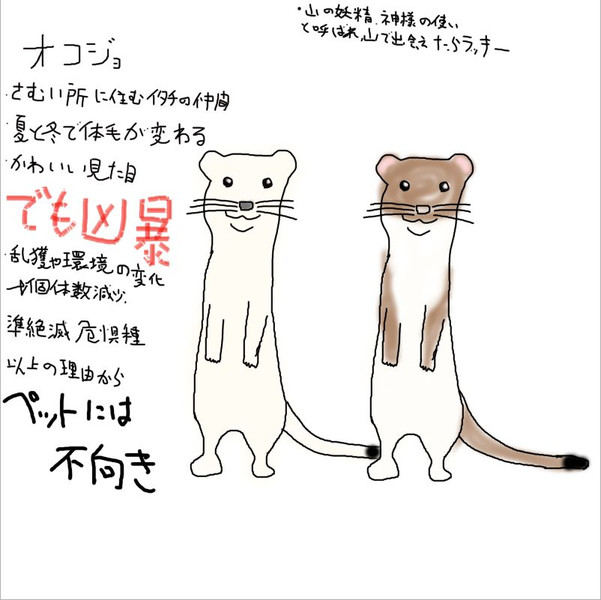 オコジョ
・さむい所に住むイタチの仲間
・夏と冬で体毛が変わる
・かわいい見た目
でも凶暴
・乱獲や環境の変化
→個体数減少
準絶滅危惧種
以上の理由から
ペットには
不向き
・山の妖精、神様の使い
と呼ばれ、山で出会えたらラッキー